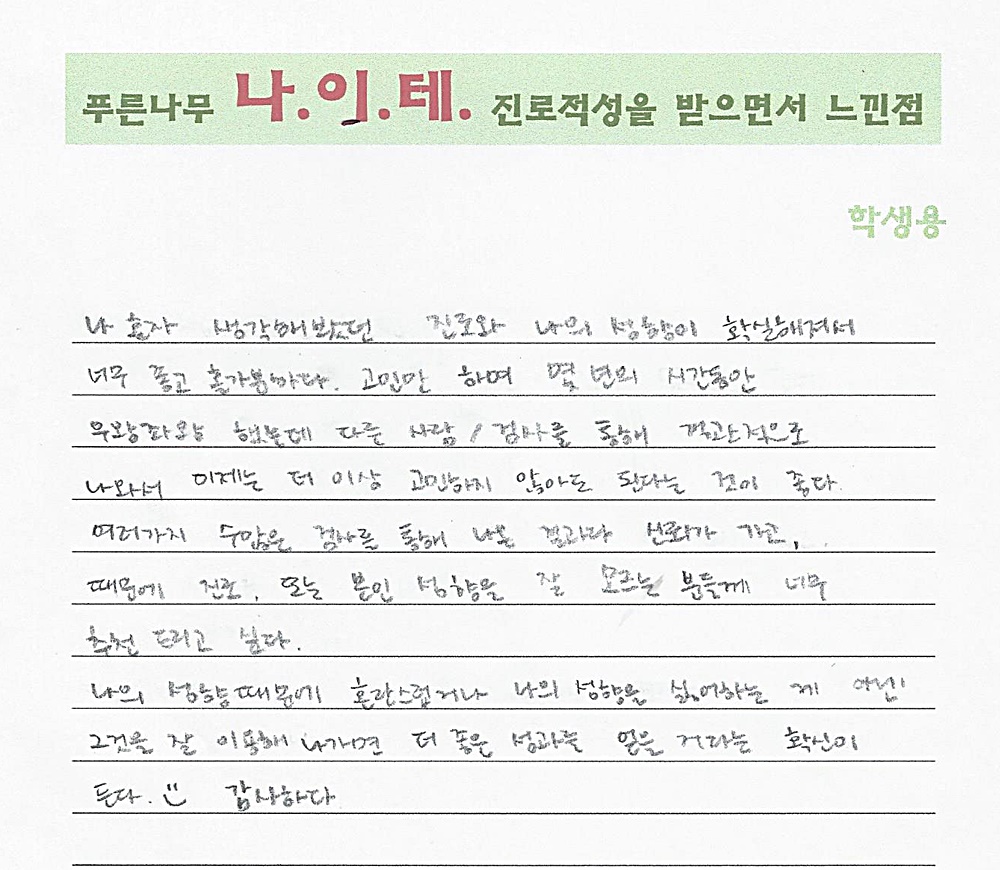 푸른나무 나.이.테. 진로적성을 받으면서 느낀점
학생용
나 혼자 생각해봤던 진로와 나의 성향이 확실해져서
너무 좋고 홀가분하다. 고민만 하며 몇 년의 시간동안
우왕좌왕 했는데 다른 사람 / 검사를 통해 객관적으로
나와서 이제는 더 이상 고민하지 않아도 된다는 것이 좋다.
여러가지 수많은 검사를 통해 나온 결과라 신뢰가 가고,
때문에 진로, 또는 본인 성향을 잘 모르는 분들께 너무
추천 드리고 싶다.
나의 성향때문에 혼란스럽거나 나의 성향을 싫어하는 게 아닌!
그것을 잘 이용해 나가면 더 좋은 성과를 얻을 거라는 확신이
든다. 감사하다